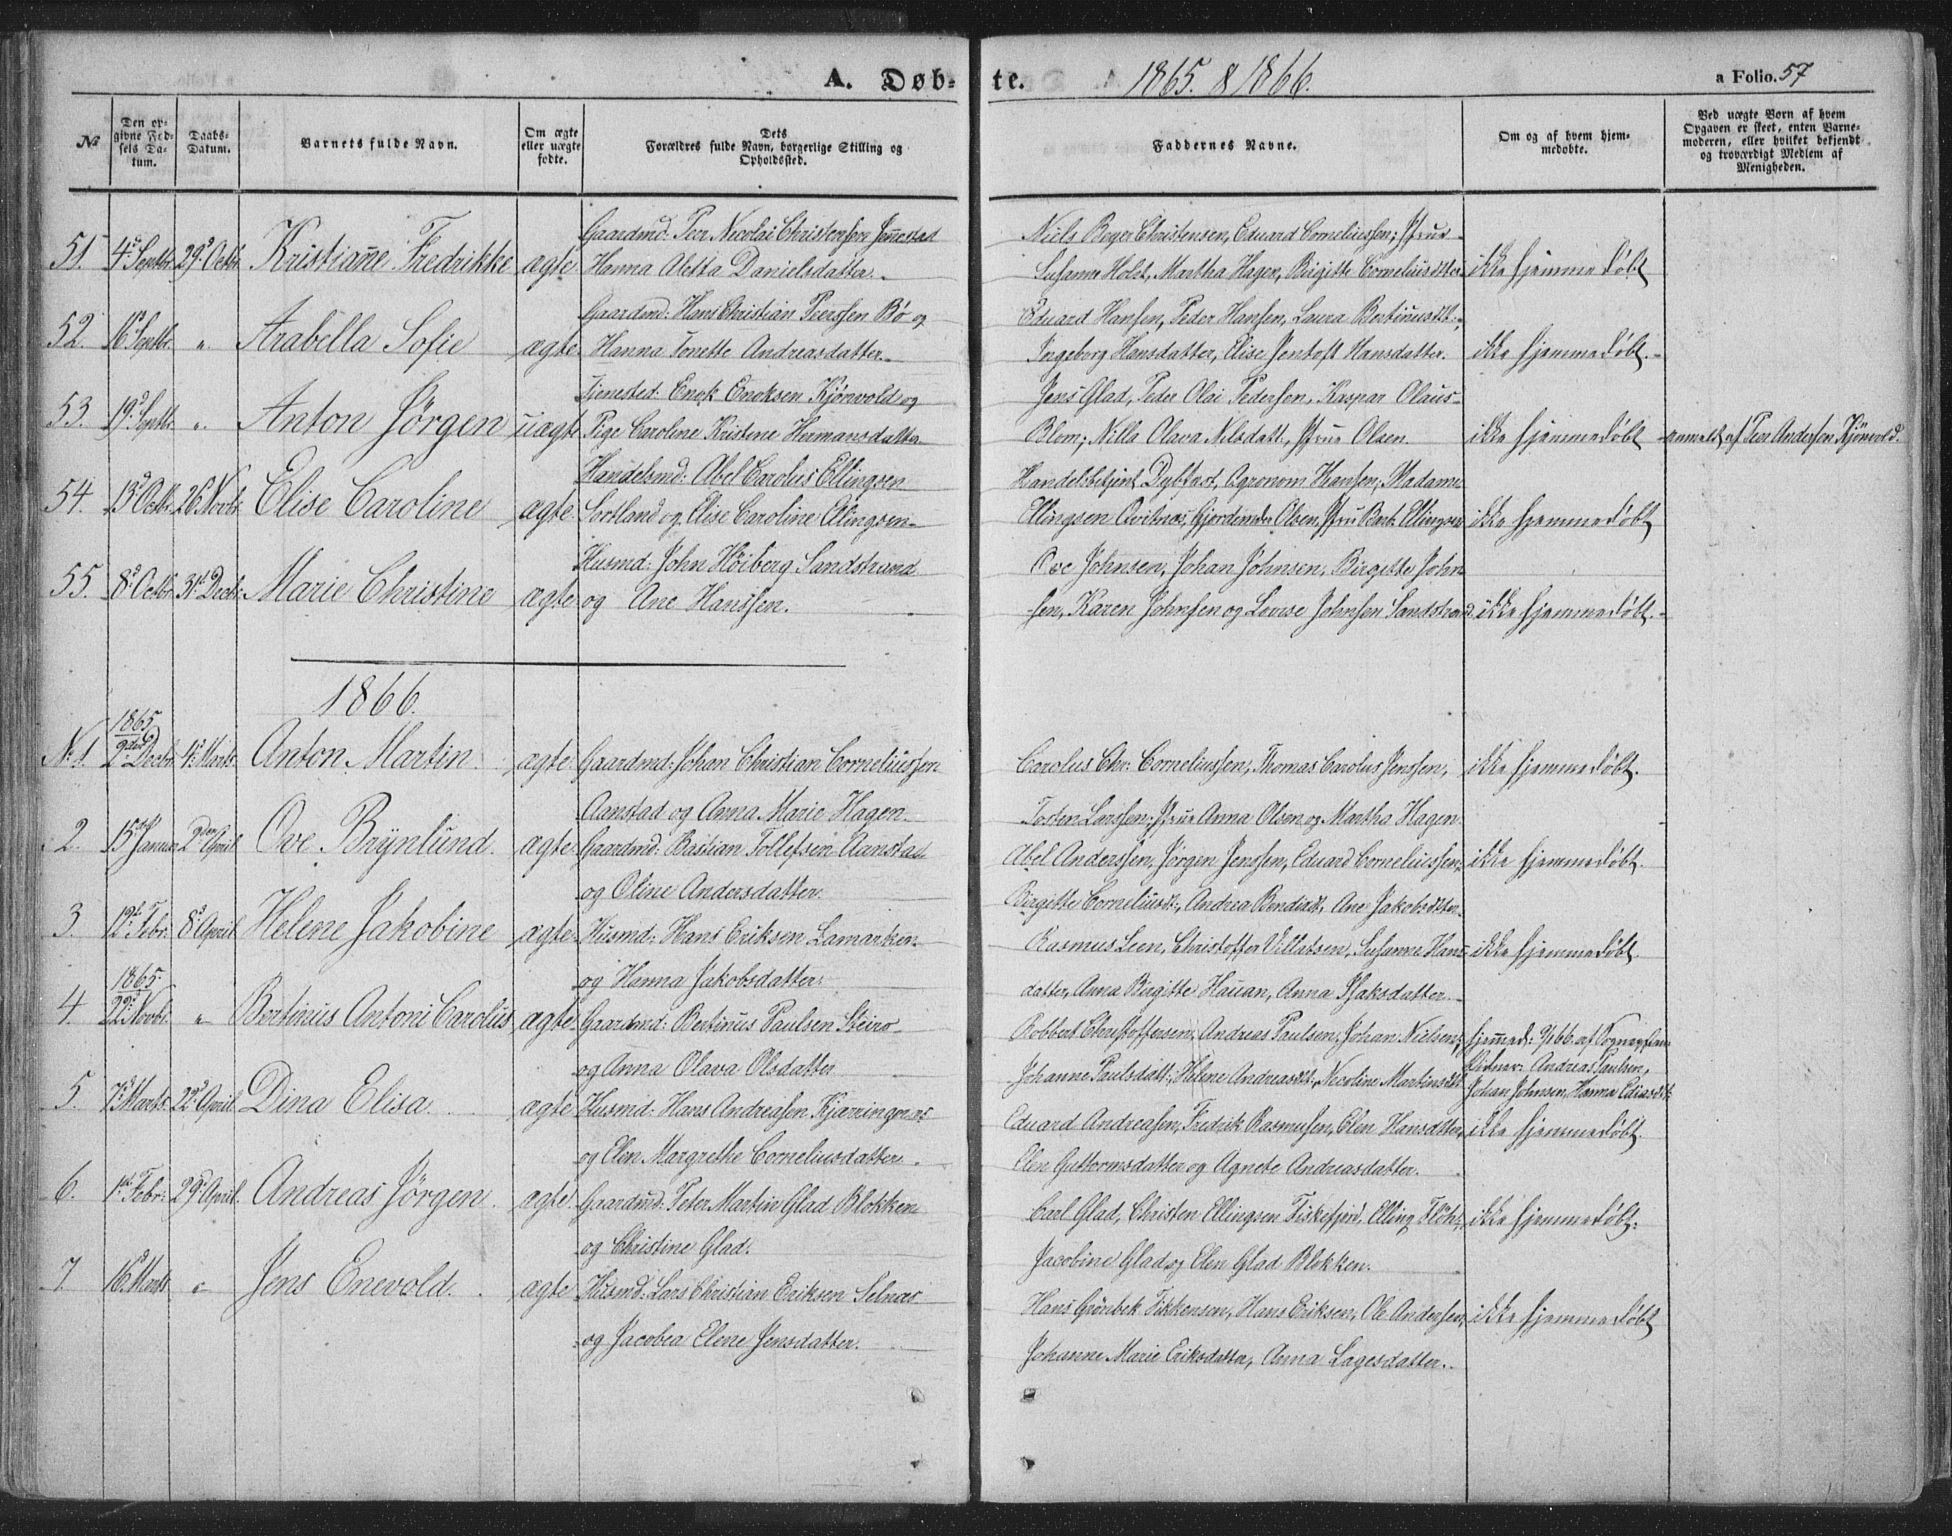 A. Døb-
te. 1865 & 1866.
a Folio. 57
No
Den opgivne Fødsels Datum.
Daabs-Datum.
Barnets fulde Navn.
Om ægte eller uægte fødte.
Dets Forældres fulde Navn, borgerlige Stilling og Opholdssted.
Faddernes Navne.
Om og af hvem hjemmedøbte.
Ved uægte Børn af hvem Opgaven er skeet, enten Barnemoderen, eller hvilket bekjendt og troværdigt Medlem af Menigheden.
Gaardmd: Peer Nicolai Christensen Jennestad
Niels Boger Christensen, Eduard Corneliussen, Jfrue
51. 4d Septbr 29d Octbr Kristianne Fredrikke ægte Hanna Aletta Danielsdatter.
Susanne Holst, Martha Hagen, Birgitte Corneliusdtter ikke hjemmedøbt
Gaardmd: Hans Christian Peerssen Bø og
Eduard Hansen, Peder Hansen, Laura Bertinusdt.,
52. 16d Septbr. " Arabella Sofie ægte Hanna Tonette Andreasdatter
Ingeborg Hansdatter, Elise Jentoft Hansdatter. ikke hjemmedøbt.
Tjenested: Enok Enoksen Kjørvold og
Jens Glad, Peder Olai Pedersen, Kaspar Olaus
53. 19d Septbr. " Anton Jörgen uægte Pige Caroline Kristene Hermansdatter
Blom, Nilla Olava Nilsdatt, Jfrue Olsen. ikke hjemmedøbt anmeldt af Peer Andersen Kjörvold.
Handelsmd: Abel Carolus Ellingsen
Handelsbetjent Dybfest, Agronom Hansen, Madame
54. 13d Octbr 26 Novbr. Elise Caroline ægte Sortland og Elise Caroline Ellingsen
Ellingsen Qvitnæs, Gjordemoder Olsen, Jfru Barb. Ellingsen ikke hjemmedøbt
Husmd: John Höiberg Sandstrand
Ove Johnsen, Johan Johnsen, Birgitte John
55. 8d Octbr. 31st Decbr. Marie Christine ægte og Ane Hanssen.
sen, Karen Johnsen og Lovise Johnsen Sandstrand. ikke hjemmedøbt.
1866.
1865
No 1 2den Decbr 4d Marts Anton Martin ægte Gaardmd: Johan Christian Corneliussen
Carolus Chr. Corneliussen, Thomas Carolus Jenssen, ikke hjemmedøbt.
Aanstad og Anna Marie Hagen
Tosten Larssen, Jfrue Anna Olsen og Martha Hagen
2. 15d Januar 2den April Ove Brynlund ægte Gaardmd: Bastian Tollefsen Aanstad
Abel Anderssen, Jørgen Jenssen, Eduard Corneliussen, ikke hjemmedøbt.
og Oline Andersdatter.
Birgitte Corneliusdt., Andrea Bendixdt, Ane Jakobsdtter
3. 12t Febr. 8d April Helene Jakobine ægte Husmd: Hans Eriksen Lamarken
Rasmus Leen, Christoffer Villatsen, Susanne Hans- ikke hjemmedøbt
1865.
og Hanna Jakobsdatter.
datter, Anna Birgitte Hauan, Anna Isaksdatter
4. 22d Novbr. " Bertinus Antoni Carolus ægte Gaardmd: Bertinus Paulsen Steiro
Robbert Christoffersen, Andreas Paulsen, Johan Nielsen, hjemmed:
og Anna Olava Olsdatter
Johanne Paulsdatt, Helene Andreasdt. Nicoline Martinsdt. Andreas Paulsen,
Johan Johnsen, Hanna Ediasdt:
5. 7d Marts 22d April Dina Elisa ægte Husmd: Hans Andreasen Kjærringnæs
Eduard Andreasen, Fredrik Rasmussen, Elen Hansdtter, ikke hjemmedøbt.
og Elen Margrethe Corneliusdatter.
Elen Guttormsdatter og Agnete Andreasdatter.
6. 1st Febr. 29d April Andreas Jörgen. ægte Gaardmd: Peter Martin Glad Blokken
Carl Glad, Christen Ellingsen Fiskefjord, Elling Flöhr, ikke hjemmedøbt.
og Christine Glad.
Jacobine Glad og Elen Glad Blokken.
7. 16d Marts " Jens Enevold. ægte Husmd: Lars Christian Eriksen Selnæs
Hans Grönbek Fikkensen, Hans Eriksen, Ole Andersen, ikke hjemmedøbt
og Jacobea Elene Jensdatter.
Johanne Marie Eriksdatter, Anna Lagesdatter.